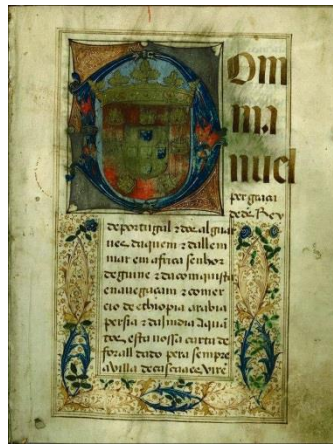 Dom
ma
nuel
per graça
de ds. Rey
de portugal z dos algar
ues daquem z dallem
mar em africa senhor
de guine z da comquista
e nauegaçam z comer
cio de ethiopia arabia
persia z da Jndia A quã
tos esta nossa carta de
forall dado pera sempre
a villa de